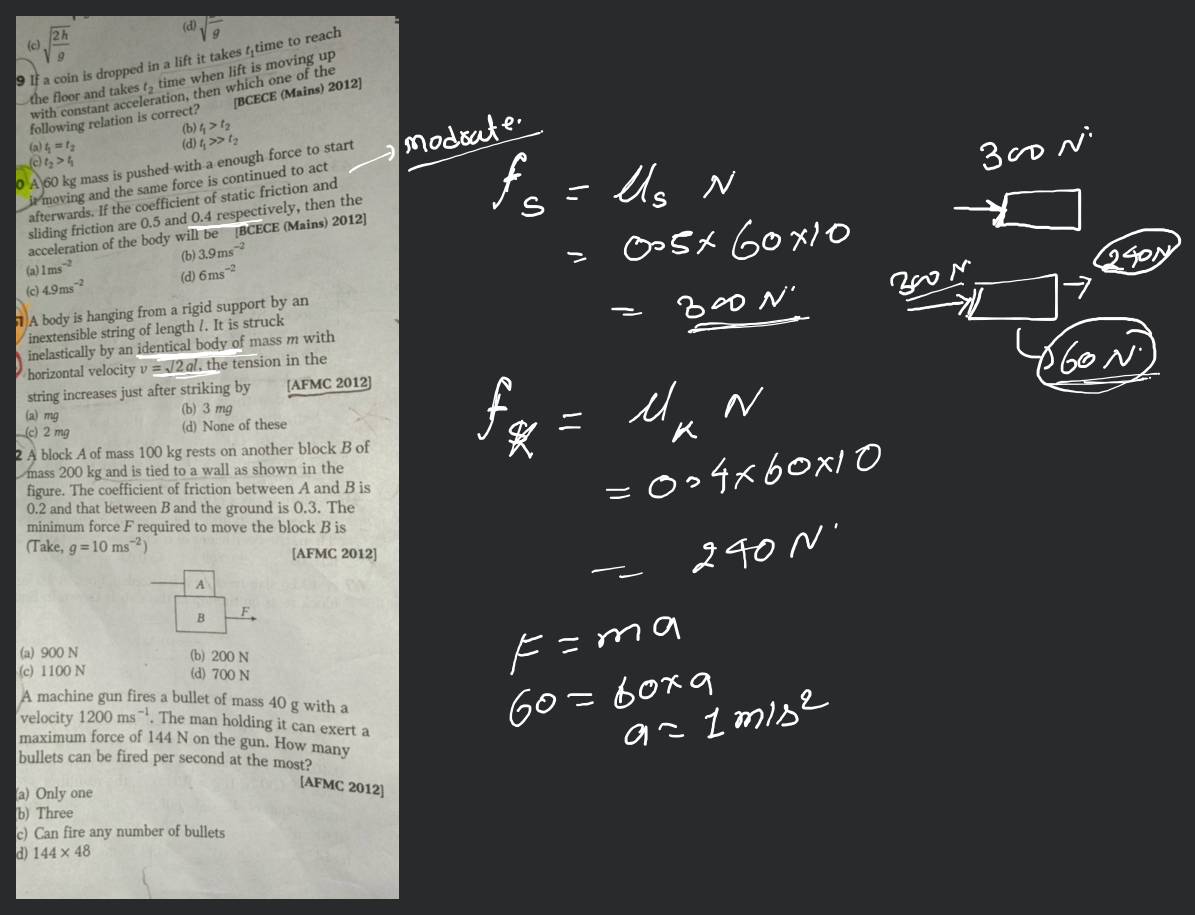 (c) √2h/g
(d) √ /g
9 If a coin is dropped in a lift it takes t₁ time to reach
the floor and takes t₂ time when lift is moving up
with constant acceleration, then which one of the
following relation is correct? [BCECE (Mains) 2012]
(a) t₁ = t₂ (b) t₁ > t₂
(c) t₂ > t₁ (d) t₁ >> t₂
0 A 60 kg mass is pushed with a enough force to start
it moving and the same force is continued to act
afterwards. If the coefficient of static friction and
sliding friction are 0.5 and 0.4 respectively, then the
acceleration of the body will be [BCECE (Mains) 2012]
(a) 1 ms⁻² (b) 3.9 ms⁻²
(c) 4.9 ms⁻² (d) 6 ms⁻²
1 A body is hanging from a rigid support by an
inextensible string of length l. It is struck
inelastically by an identical body of mass m with
horizontal velocity v = √2gl, the tension in the
string increases just after striking by [AFMC 2012]
(a) mg (b) 3 mg
(c) 2 mg (d) None of these
2 A block A of mass 100 kg rests on another block B of
mass 200 kg and is tied to a wall as shown in the
figure. The coefficient of friction between A and B is
0.2 and that between B and the ground is 0.3. The
minimum force F required to move the block B is
(Take, g = 10 ms⁻²) [AFMC 2012]
A
B F
(a) 900 N (b) 200 N
(c) 1100 N (d) 700 N
A machine gun fires a bullet of mass 40 g with a
velocity 1200 ms⁻¹. The man holding it can exert a
maximum force of 144 N on the gun. How many
bullets can be fired per second at the most?
[AFMC 2012]
(a) Only one
(b) Three
(c) Can fire any number of bullets
(d) 144 × 48
modrate.
fs = μs N
= 0.5 × 60 × 10
= 300 N
fK = μK N
= 0.4 × 60 × 10
= 240 N
F = ma
60 = 60 × a
a = 1 m/s²
300 N
300 N
240 N
60 N